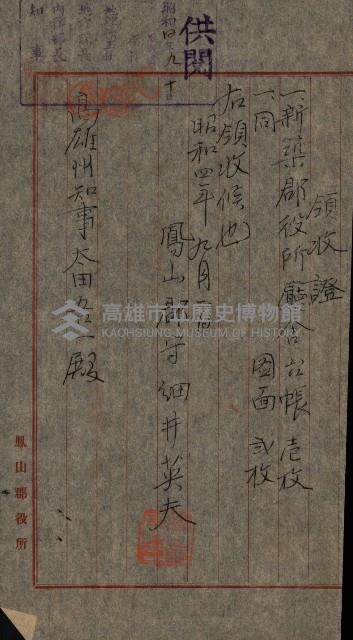 供閱
昭和 四 九 十
知事
領收證
一、新築郡役所廳舍台帳 壱枚
一、同 圖面 貳枚
右領收候也
昭和四年九月
鳳山郡守細井英夫
高雄州知事太田吾一殿
鳳山郡役所
高雄市立歷史博物館
KAOHSIUNG MUSEUM OF HISTORY